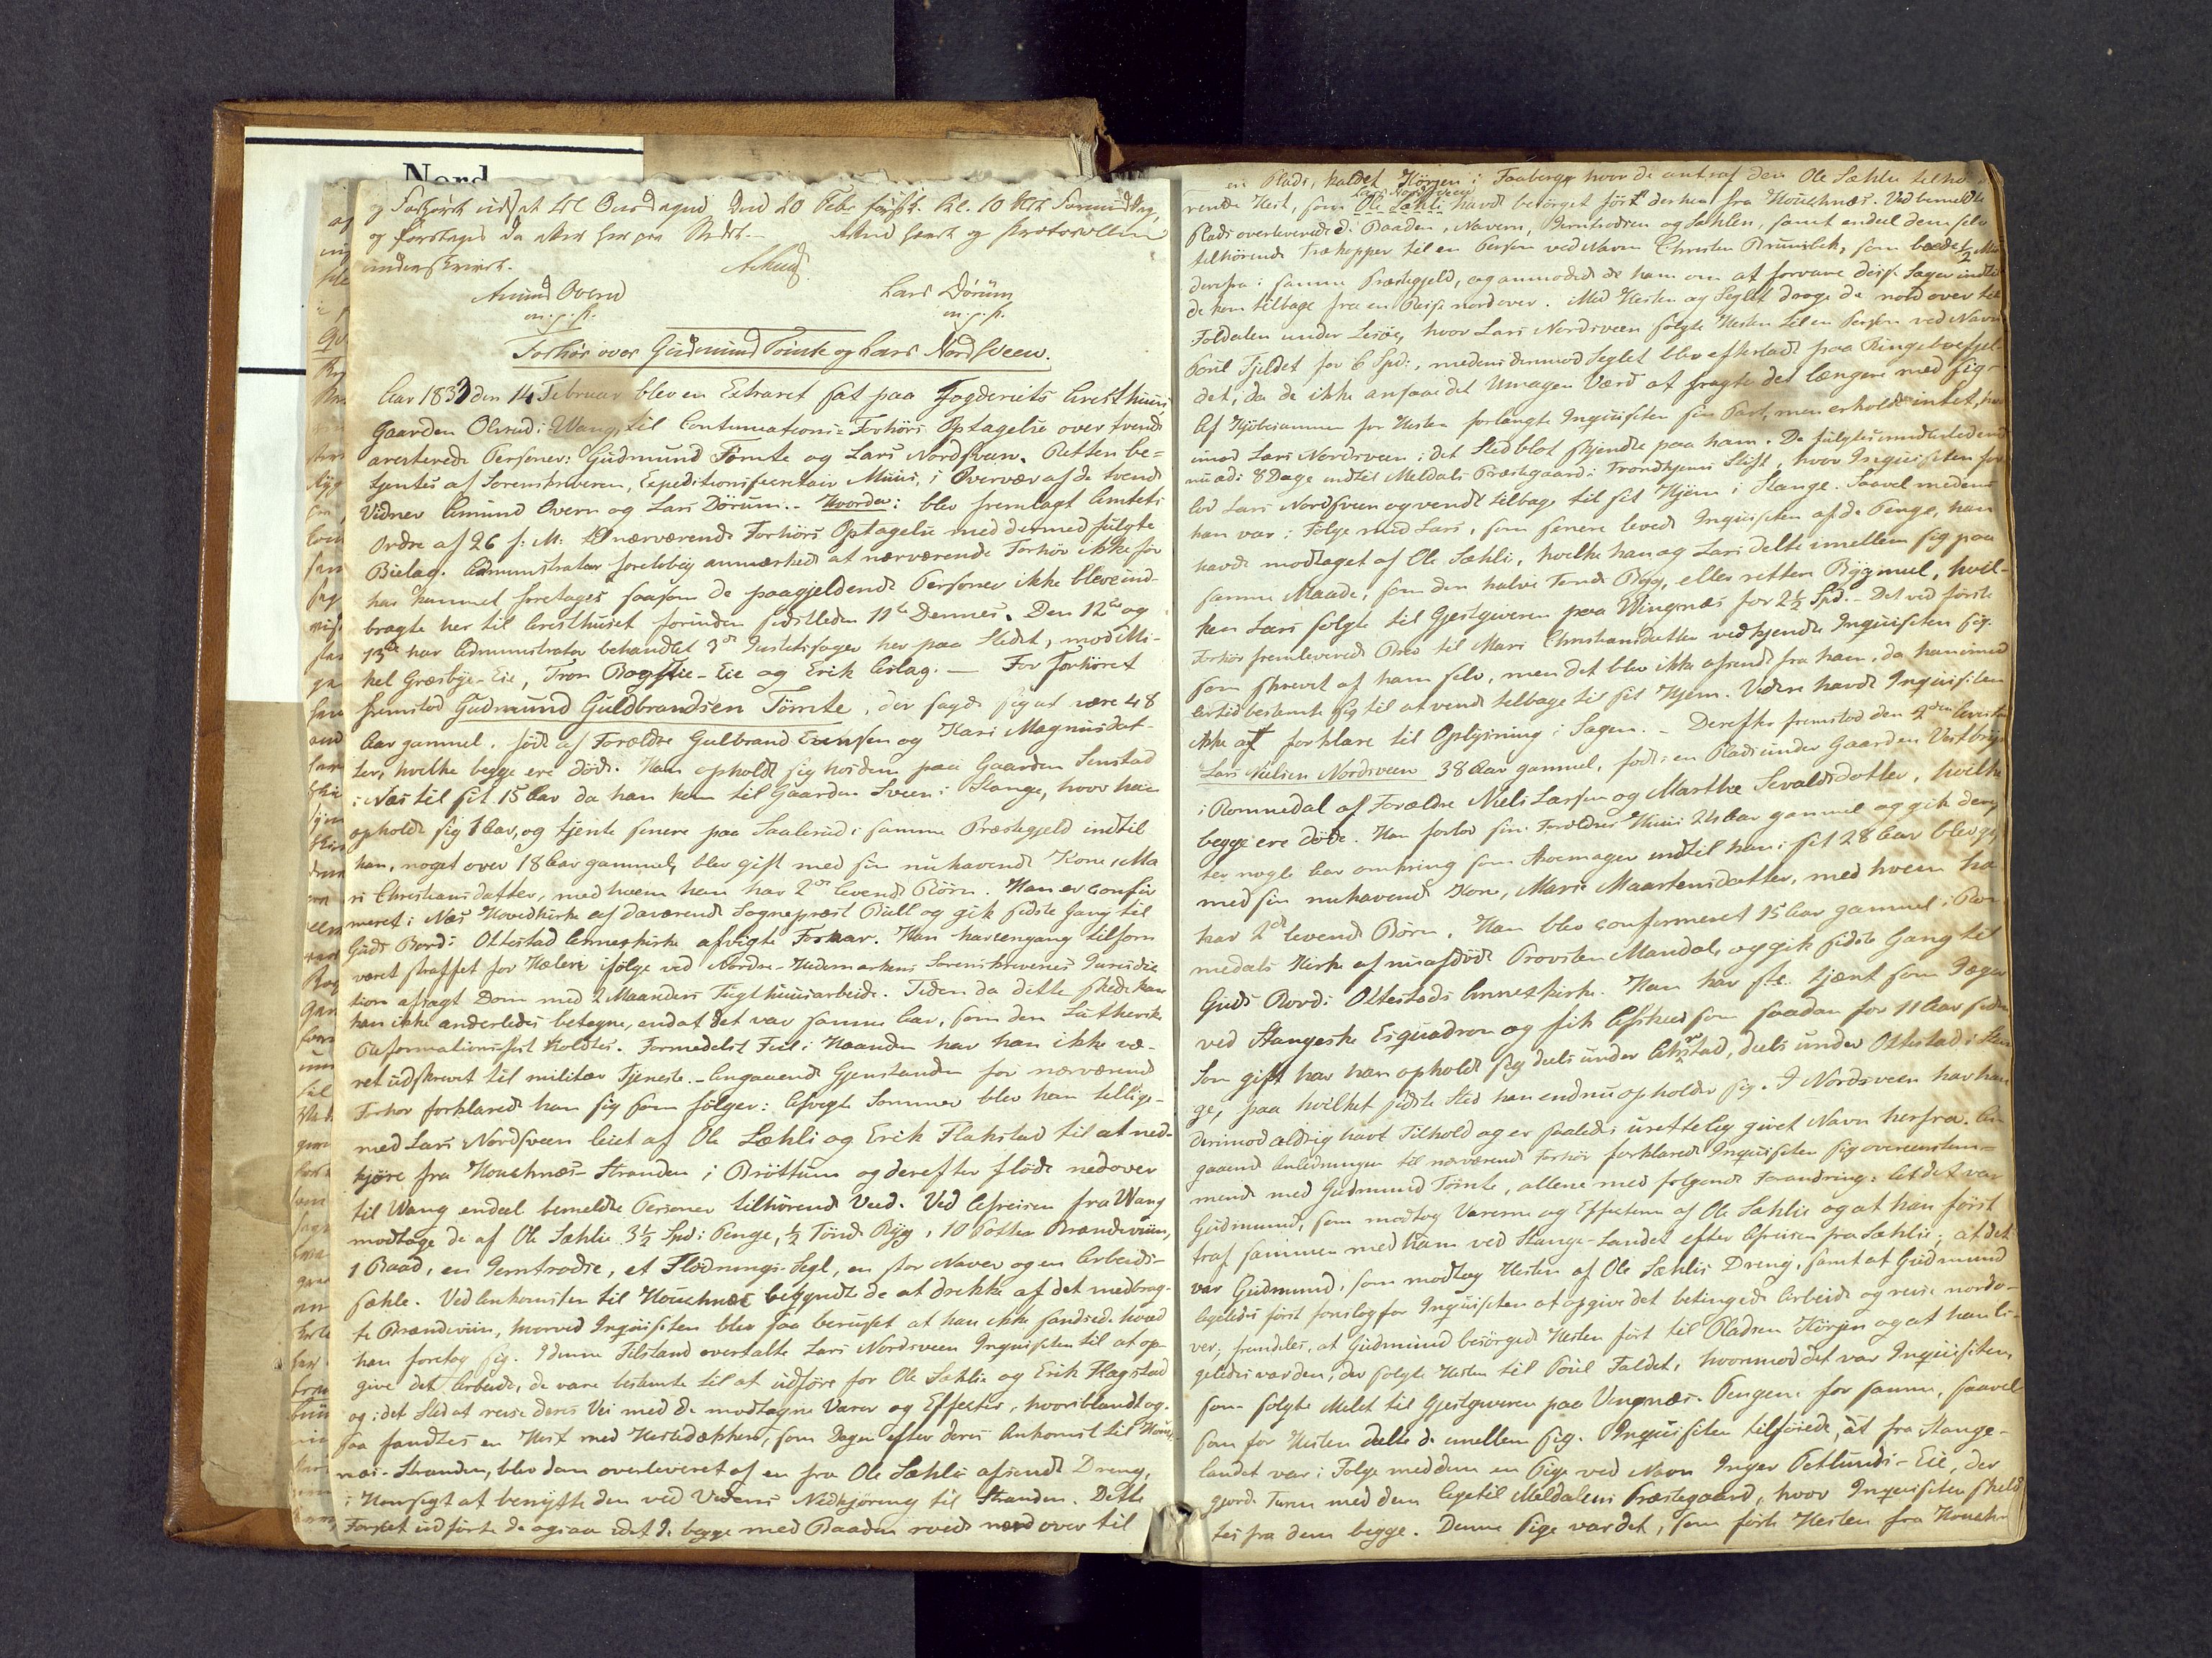 Nord
og Forhøret udsat til Onsdagen den 20 Febr. førstk. Kl. 10 Formiddag,
og foretages da atter her paa Stedet. Protocollen
underskrevet.
Amund Overn Lars Dørum
m.f.P. m.f.P.
Forhør over Gudmund Tømte og Lars Nordsveen.
Aar 1833 den 14 Februar blev en Extraret sat paa Fogderiets Aresthuus,
Gaarden Olsrud i Wang, til Continuations-Forhørs Optagelse over tvende
arresterede Personer: Gudmund Tømte og Lars Nordsveen. Retten be-
tjentes af Sorenskriveren, Expeditionssecretair Muus, i Overvær af de tvende
Vidner Amund Overn og Lars Dørum. - Hvorda: blev fremlagt Amtets
Ordre af 26 f: M: til nærværende Forhørs Optagelse med dermed fulgte
Bielag. Administrator foreløbig anmærkede at nærværende Forhør ikke før
har kunnet foretages saasom de paagjeldende Personer ikke bleve ind-
bragte her til Aresthuset forinden sidstleden 11te Dennes. Den 12te og
13de har Administrator behandlet 3de Justitssager her paa Stedet, mod Mi-
kel Græsbye-Eie, Tron Bogstie-Eie og Erik Aslag. - For Forhøret
fremstod Gudmund Guldbrandsen Tømte, der sagde sig at være 48
Aar gammel, født af Forældre Gulbrand Evensen og Kari Magnusdat-
ter, hvilke begge ere døde. Han opholdt sig hos dem paa Gaarden Smstad
i Næs til sit 15 Aar da han kom til Gaarden Sveen i Stange, hvor han
opholdt sig 1 Aar, og tjente senere paa Saalerud i samme Præstegjeld indtil
han, noget over 18 Aar gammel, blev gift med sin nuhavende Kone, Ma
ri Christiansdatter, med hvem han har 2de levende Børn. Han er confir
meret i Næs Hovedkirke af daværende Sognepræst Bull og gik sidste Gang til
Guds Bord i Ottestad Annexkirke afvigte Foraar. Han har eengang tilforn
været straffet for Hæleri ifølge ved Nordre-Hedemarkens Sorenskriveries Jurisdic-
tion afsagt Dom med 2 Maaneders Tugthuusarbeide. Tiden da dette skede kan
han ikke anderledes betegne, end at det var samme Aar, som den Lutherske
Reformationsfest holdtes. Formedelst Feil i Haanden har han ikke væ-
ret udskrevet til militær Tjeneste. - Angaaende Gjenstanden for nærværende
Forhør forklarede han sig som følger: Afvigte Sommer blev han tillige-
med Lars Nordsveen leiet af Ole Sæhli og Erik Flakstad til at ned-
kjøre fra Houchnæs-Stranden i Brøttum og derefter fløde nedover
til Wang endeel bemeldte Personer tilhørende Ved. Ved Afreisen fra Wang
modtoge de af Ole Sæhlie 3½ Spd: Penge, ½ Tønde Byg, 10 Potter Brændeviin,
1 Baad, en Jerntrodse, et Flødnings-Segl, en stor Naver og en Arbeids-
sæhle. Ved Ankomsten til Houchnæs begyndte de at drikke af det medbrag-
te Brændeviin, hvorved Inquisiten blev saa beruset at han ikke sandsede hvad
han foretog sig. I denne Tilstand overtalte Lars Nordsveen Inquisiten til at op-
give det Arbeide, de vare bestemte til at udføre for Ole Sæhlie og Erik Flagstad
og i det Sted at reise deres Vei med de modtagne Varer og Effecter, hvoriblandt og-
saa fandtes en Hest med Hestedækken, som Dagen efter deres Ankomst til Houch-
næs-Stranden, blev dem overleveret af en fra Ole Sæhlie afsendt Dreng,
i Hensigt at benytte den ved Vedens Nedkjøring til Stranden. Dette
Forsæt udførte de ogsaa idet de begge med Baaden roede nordover til
en Plads, kaldet Kørjen i Faaberg, hvor de antraf den Ole Sæhlie tilhø-
Lars Nordsveen
rende Hest, som Ole Sæhli havde besørget ført derhen fra Houchnæs. Ved bemeldte
Plads overleverede de Baaden, Naveren, Jerntrodsen og Sæhlen, samt endeel dem selv
tilhørende Trækopper til en Person ved Navn Christen Brunslek, som boede ½ Miil
derfra i samme Præstegjeld, og anmodede de ham om at forvare disse Sager indtil
de kom tilbage fra en Reise nordover. Med Hesten og Seglet droge de nordover til
Foldalen under Lesøe, hvor Lars Nordsveen solgte Hesten til en Person ved Navn
Poul Fjeldet for 6 Spd:, medens derimod Seglet blev efterladt paa Ringeboefjel-
det, da de ikke ansaae det Umagen værd at fragte det længere med sig.
Af Kjøbesummen for Hesten forlangte Inquisiten sin Part, men erholdt intet, hvor-
imod Lars Nordsveen i det Sted blot skjendte paa ham. De fulgtes imidlertid end-
nu ad i 8 Dage indtil Meldals Præstegaard i Trondhjems Stift, hvor Inquisiten for-
lod Lars Nordsveen og vendte tilbage til sit Hjem i Stange. Saavel medens
han var i Følge med Lars, som senere levede Inquisiten af de Penge, han
havde modtaget af Ole Sæhli, hvilke han og Lars delte imellem sig paa
samme Maade, som den halve Tønde Byg, eller rettere Bygmeel, hvil-
ken Lars solgte til Gjestgiveren paa Wingnæs for 2½ Spd. - Det ved første
Forhør fremleverede Brev til Mari Christiansdatter vedkjendte Inquisiten sig
som skrevet af ham selv, men det blev ikke afsendt fra ham, da han imid
lertid bestemte sig til at vende tilbage til sit Hjem. Videre havde Inquisiten
ikke at forklare til Oplysning i Sagen. - Derefter fremstod den 2den Arrestant
Lars Nielsen Nordsveen 38 Aar gammel, født i en Plads under Gaarden Vestbrye
i Romnedal af Forældre Niels Larsen og Marthe Sevaldsdatter, hvilke
begge ere døde. Han forlod sin Forældres Huus 24 Aar gammel og gik deref-
ter nogle Aar omkring som Skoemager indtil han i sit 28 Aar blev gift
med sin nuhavende Kone, Marie Maartensdatter, med hvem han
har 2de levende Børn. Han blev confirmeret 15 Aar gammel i Rom-
nedals Kirke af nuafdøde Provsten Mandal, og gik sidste Gang til
Guds Bord i Ottestads Annexkirke. Han har tjent som Jæger
ved Stangeske Esquadron og fik Afskeed som saadan for 11 Aar siden
Som gift har han opholdt sig deels under Atstad, deels under Ottestad i Stan
ge, paa hvilket sidste Sted han endnu opholder sig. I Nordsveen har han
derimod aldrig havt Tilhold og er saaledes urettelig givet Navn herfra. An-
gaaende Anledningen til nærværende Forhør forklarede Inquisiten sig overeenstem-
mende med Gudmund Tømte, allene med følgende Forandring: At det var
Gudmund, som modtog Varerne og Effecterne af Ole Sæhlie og at han først
traf sammen med ham ved Stange-Landet efter Afreisen fra Sæhlie; at det
var Gudmund, som modtog Hesten af Ole Sæhlies Dreng, samt at Gudmund
ligeledes først foreslog for Inquisiten at opgive det betingede Arbeide og reise nordo-
ver; fremdeles, at Gudmund besørgede Hesten ført til Pladsen Kørjen og at han li-
geledes var den, der solgte Hesten til Poul Faldet, hvorimod det var Inquisiten,
som solgte Melet til Gjestgiveren paa Vingnæs. Pengene for samme, saavel
som for Hesten deelte de imellem sig. Inquisiten tilføiede, at fra Stange-
landet var i Følge med dem en Pige ved Navn Inger Petlunds-Eie, der
gjorde Turen med dem ligetil Meldalens Præstegaard, hvor Inquisiten skild
tes fra dem begge. Denne Pige var det, som førte Hesten fra Houchn